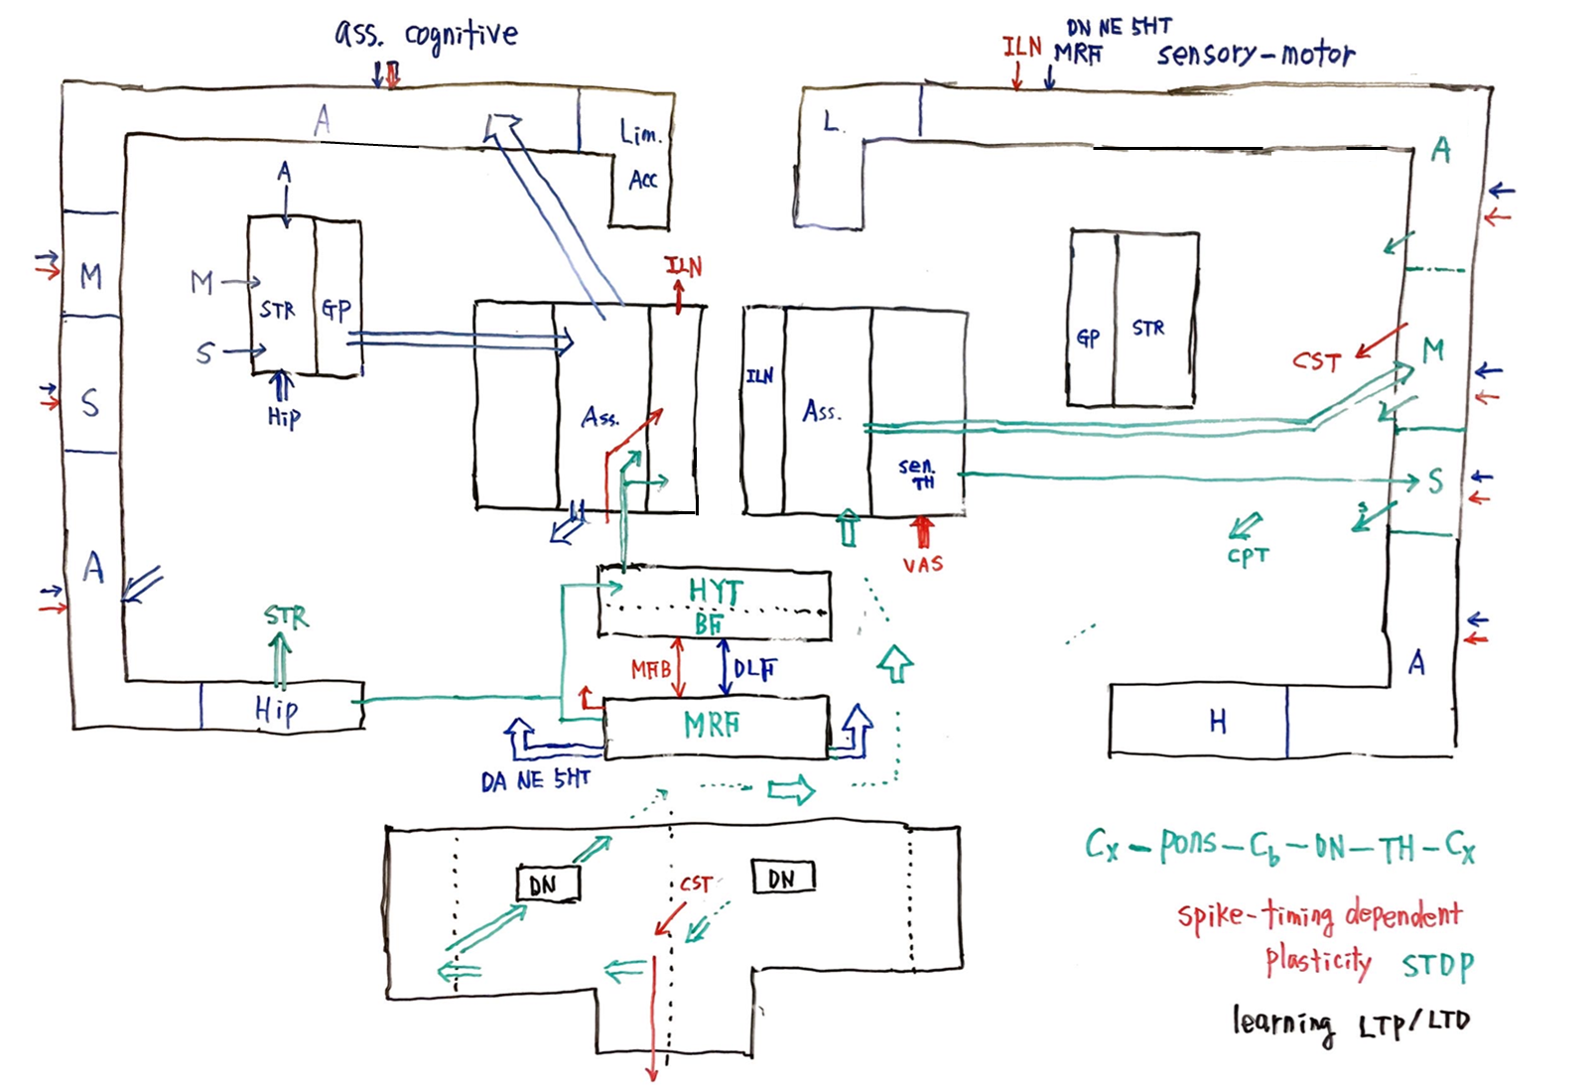 ass. cognitive
A
Lim.
Acc
M
S
A
A
M
S
STR
GP
Hip
ILN
Ass.
STR
Hip
HYT
BF
MFB
DLF
MRF
DA NE 5HT
DN NE 5HT
ILN MRF sensory-motor
L.
A
GP
STR
CST
M
ILN
Ass.
sen.
TH
S
S
VAS
CPT
A
H
DN
DN
CST
Cx - pons - Cb - DN - TH - Cx
spike-timing dependent
plasticity STDP
learning LTP/LTD